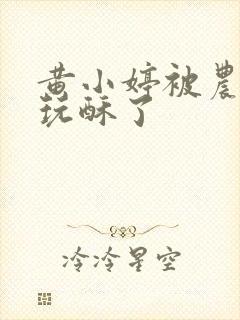 黄小婷被農
玩酥了
冷冷星空